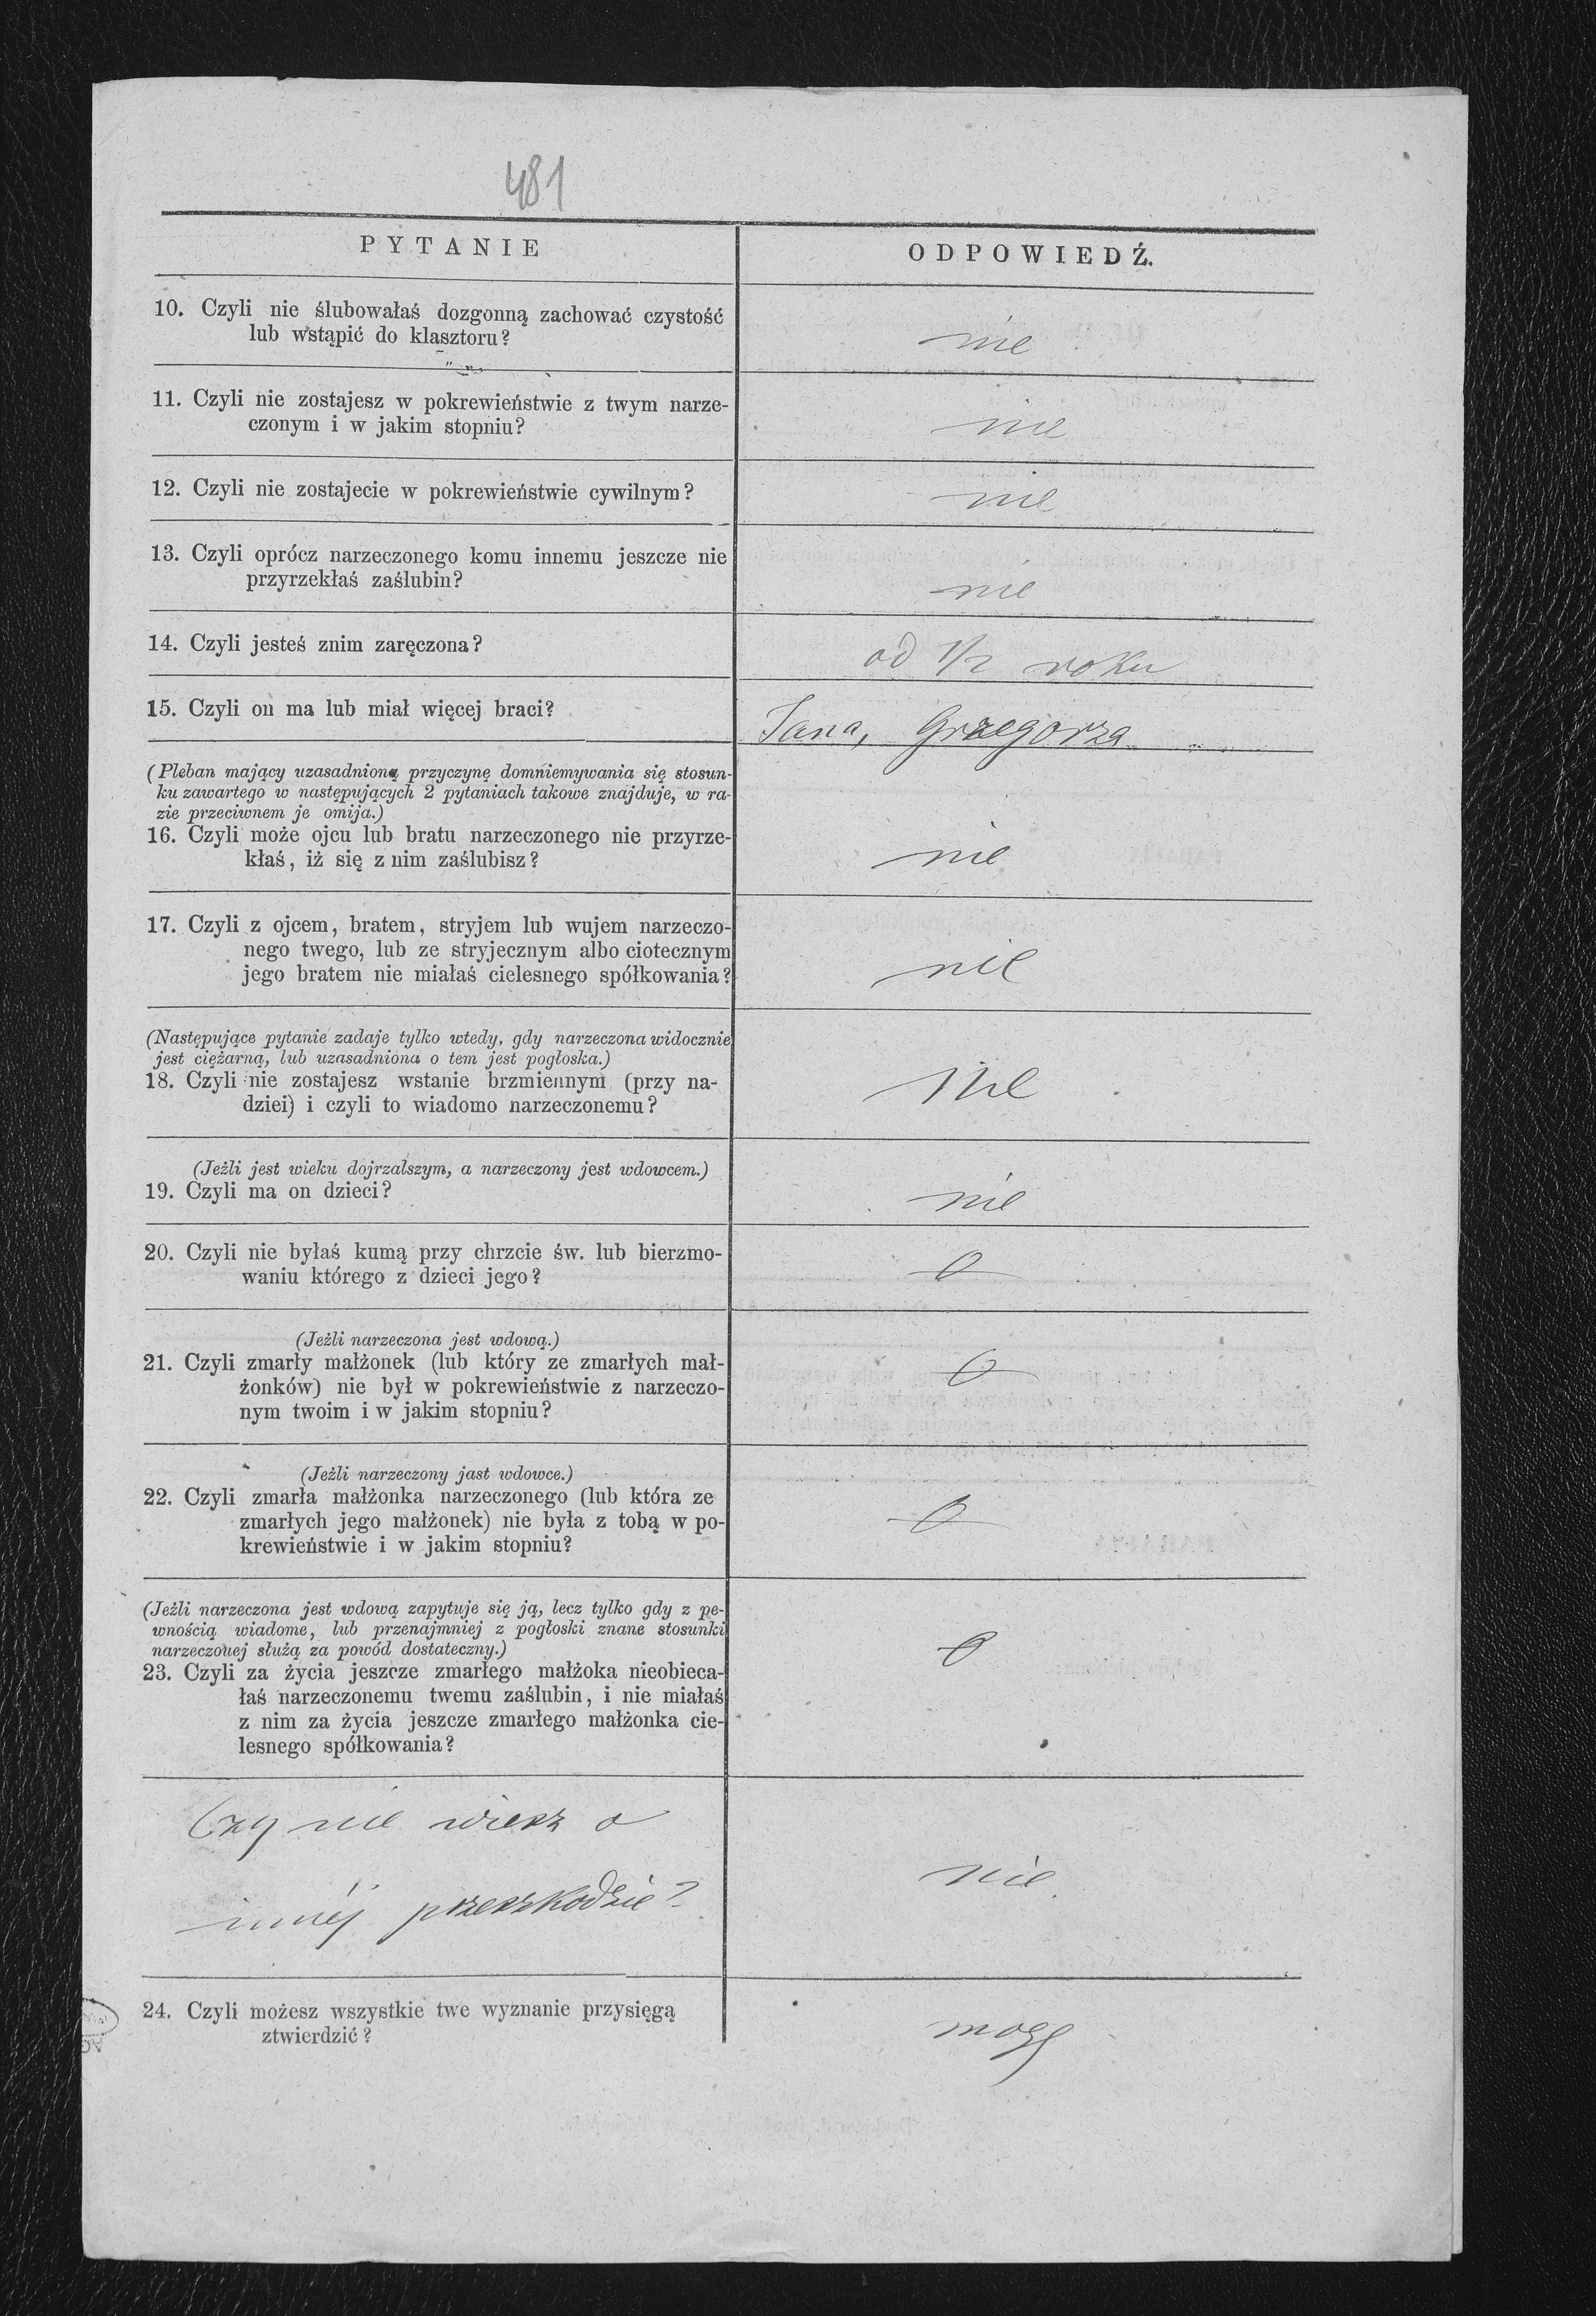 481
PYTANIE
ODPOWIEDŹ.
10. Czyli nie ślubowałaś dozgonną zachować czystość
lub wstąpić do klasztoru?
nie
11. Czyli nie zostajesz w pokrewieństwie z twym narze-
czonym i w jakim stopniu?
nie
12. Czyli nie zostajecie w pokrewieństwie cywilnym?
nie
13. Czyli oprócz narzeczonego komu innemu jeszcze nie
przyrzekłaś zaślubin?
nie
14. Czyli jesteś znim zaręczona?
od 1/2 roku
15. Czyli on ma lub miał więcej braci?
Jana, Grzegorza
(Pleban mający uzasadnioną przyczynę domniemywania się stosun-
ku zawartego w następujących 2 pytaniach takowe znajduje, w ra-
zie przeciwnem je omija.)
16. Czyli może ojcu lub bratu narzeczonego nie przyrze-
kłaś, iż się z nim zaślubisz?
nie
17. Czyli z ojcem, bratem, stryjem lub wujem narzeczo-
nego twego, lub ze stryjecznym albo ciotecznym
jego bratem nie miałaś cielesnego spółkowania?
nie
(Następujące pytanie zadaje tylko wtedy, gdy narzeczona widocznie
jest ciężarną, lub uzasadniona o tem jest pogłoska.)
18. Czyli nie zostajesz wstanie brzmiennym (przy na-
dziei) i czyli to wiadomo narzeczonemu?
nie
(Jeżli jest wieku dojrzalszym, a narzeczony jest wdowcem.)
19. Czyli ma on dzieci?
nie
20. Czyli nie byłaś kumą przy chrzcie św. lub bierzmo-
waniu którego z dzieci jego?
0
(Jeżli narzeczona jest wdową.)
21. Czyli zmarły małżonek (lub który ze zmarłych mał-
żonków) nie był w pokrewieństwie z narzeczo-
nym twoim i w jakim stopniu?
0
(Jeżli narzeczony jast wdowce.)
22. Czyli zmarła małżonka narzeczonego (lub która ze
zmarłych jego małżonek) nie była z tobą w po-
krewieństwie i w jakim stopniu?
0
(Jeżli narzeczona jest wdową zapytuje się ją, lecz tylko gdy z pe-
wnością wiadome, lub przenajmniej z pogłoski znane stosunki
narzeczonej służą za powód dostateczny.)
23. Czyli za życia jeszcze zmarłego małżoka nieobieca-
łaś narzeczonemu twemu zaślubin, i nie miałaś
z nim za życia jeszcze zmarłego małżonka cie-
lesnego spółkowania?
0
Czy nie wiesz o
innéj przeszkodzie?
nie
24. Czyli możesz wszystkie twe wyznanie przysięgą
ztwierdzić?
mogę